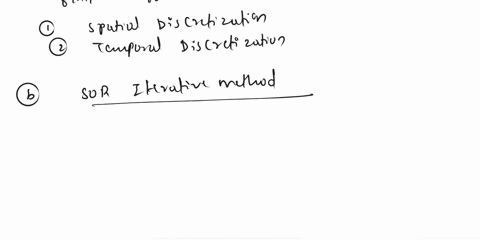 ① Spatial Discretization
② Temporal Discretization
ⓑ SOR Iterative method